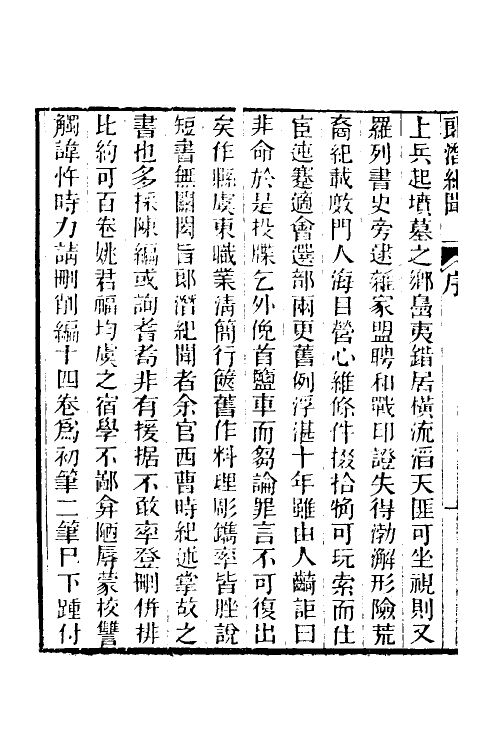 郎潛紀聞 序 一
上兵起墳墓之鄉島夷錯居橫流滔天匪可坐視則又
羅列書史旁逮雜家盟聘和戰印證失得渤澥形險荒
裔紀載數門人海目營心維條件掇拾犓可玩索而仕
宦迍蹇適會選部兩更舊例浮湛十年雖由人齮詎曰
非命於是投牒乞外俛首鹽車而芻論罪言不可復出
矣作縣虞東職業清簡行篋舊作料理彫鐫率皆脞說
短書無關閎旨郎潛紀聞者余官西曹時紀述掌故之
書也多採陳編或詢耆耇非有援据不敢率登刪倂排
比約可百卷姚君福均虞之宿學不鄙弇陋辱蒙校讐
觸諱忤時力請刪削編十四卷爲初筆二筆巳下踵付